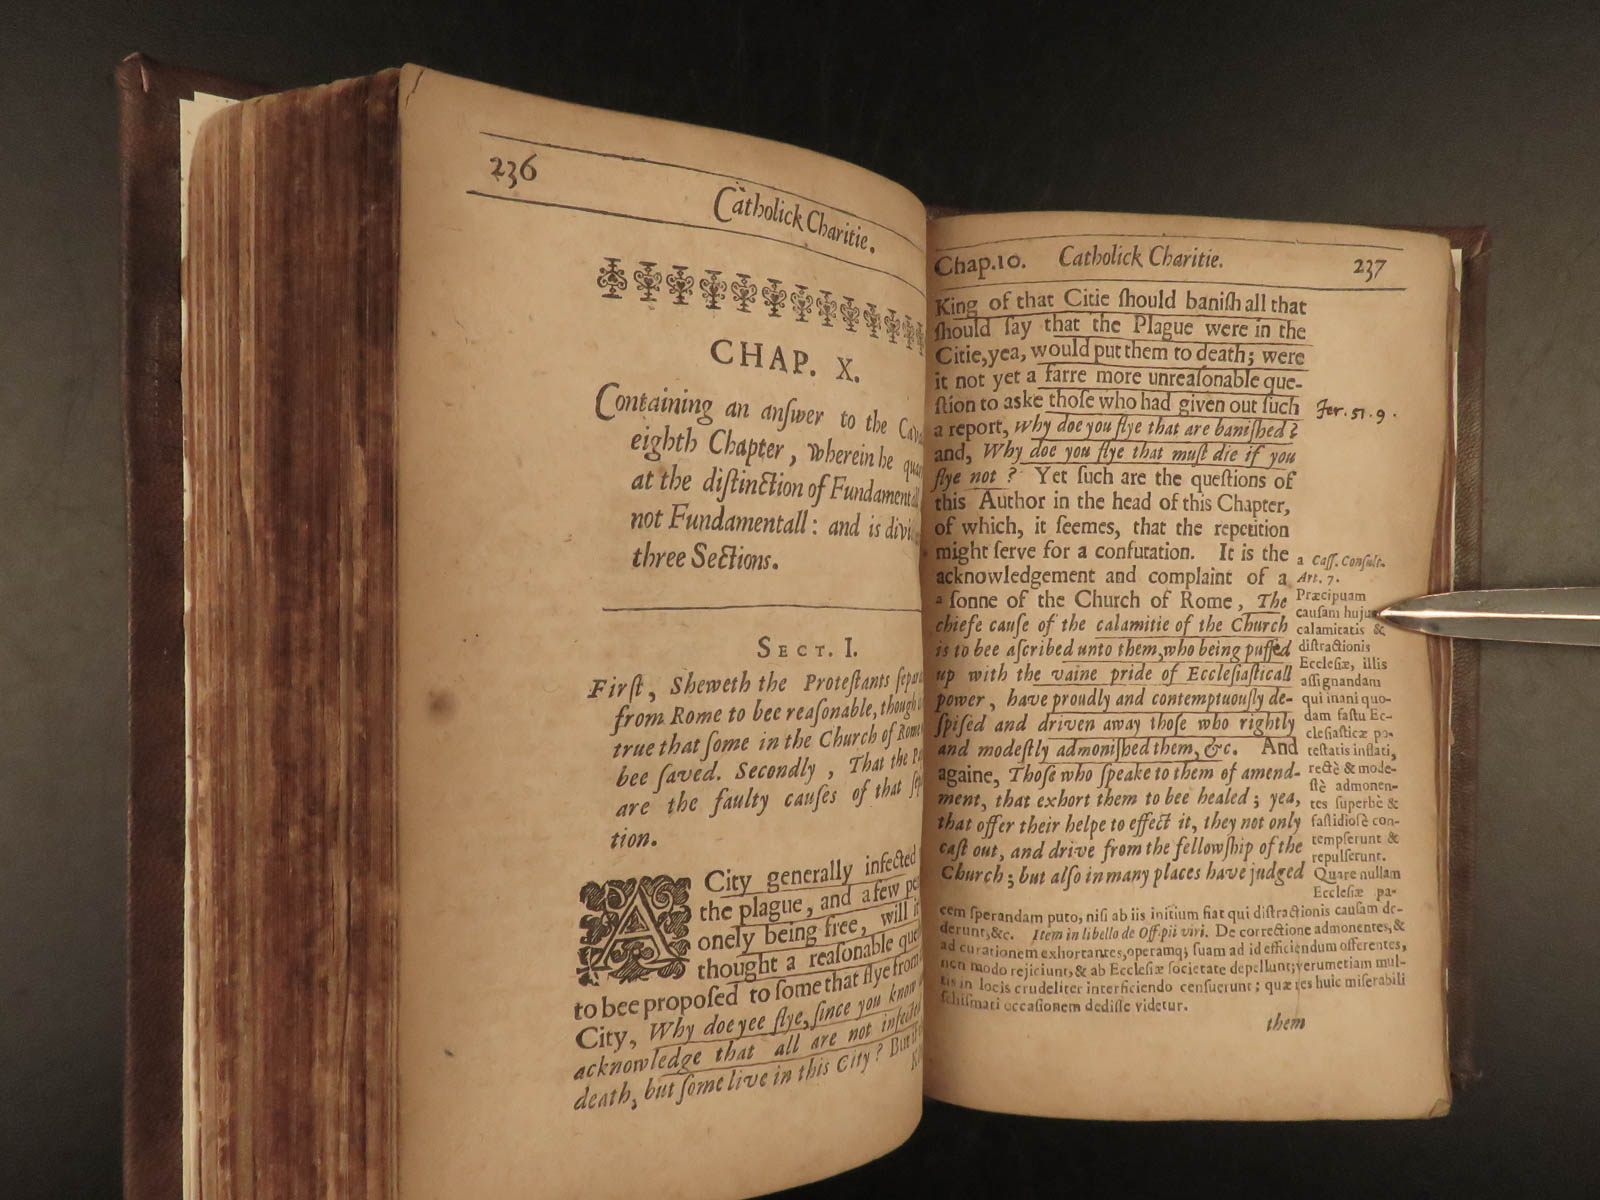 236
Catholick Charitie.
CHAP. X.
Containing an anſwer to the
eighth Chapter, wherein he
at the diſtinction of Fundamentall
not Fundamentall: and is
three Sections.
SECT. I.
Firſt, Sheweth the Proteſtants
from Rome to bee reaſonable, though
true that ſome in the Church of Rome
bee ſaved. Secondly, That the
are the faulty cauſes of that
tion.
A City generally infected
the plague, and a few
onely being free, will it
thought a reaſonable
to bee propoſed to ſome that flye from
City, Why doe yee flye, ſince you know
acknowledge that all are not infected
death, but ſome live in this City? But
Chap.10. Catholick Charitie. 237
King of that Citie ſhould baniſh all that
ſhould ſay that the Plague were in the
Citie, yea, would put them to death; were
it not yet a farre more unreaſonable que-
ſtion to aske thoſe who had given out ſuch
a report, Why doe you flye that are baniſhed?
and, Why doe you flye that muſt die if you
flye not? Yet ſuch are the queſtions of
this Author in the head of this Chapter,
of which, it ſeemes, that the repetition
might ſerve for a confutation. It is the
acknowledgement and complaint of a
a ſonne of the Church of Rome, The
chiefe cauſe of the calamitie of the Church
is to bee aſcribed unto them, who being puffed
up with the vaine pride of Eccleſiaſticall
power, have proudly and contemptuouſly de-
ſpiſed and driven away thoſe who rightly
and modeſtly admoniſhed them, &c. And
againe, Thoſe who ſpeake to them of amend-
ment, that exhort them to bee healed; yea,
that offer their helpe to effect it, they not only
caſt out, and drive from the fellowſhip of the
Church; but alſo in many places have judged
Jer. 51. 9.
a Caſſ. Conſult.
Art. 7.
Præcipuam
cauſam hujus
calamitatis &
diſtractionis
Eccleſiæ, illis
aſſignandam
qui inani quo-
dam faſtu Ec-
cleſiaſticæ po-
teſtatis inflati,
rectè & mode-
ſtè admonen-
tes ſuperbè &
faſtidioſè con-
tempſerunt &
repulſerunt.
Quare nullam
Eccleſiæ pa-
cem ſperandam puto, niſi ab iis initium fiat qui diſtractionis cauſam de-
derunt, &c. Item in libello de Off. pii viri. De correctione admonentes, &
ad curationem exhortantes, operamq; ſuam ad id efficiendum offerentes,
non modo rejiciunt, & ab Eccleſiæ ſocietate depellunt; verumetiam mul-
tis in locis crudeliter interficiendo cenſuerunt; quæ res huic miſerabili
ſchiſmati occaſionem dediſſe videtur.
them